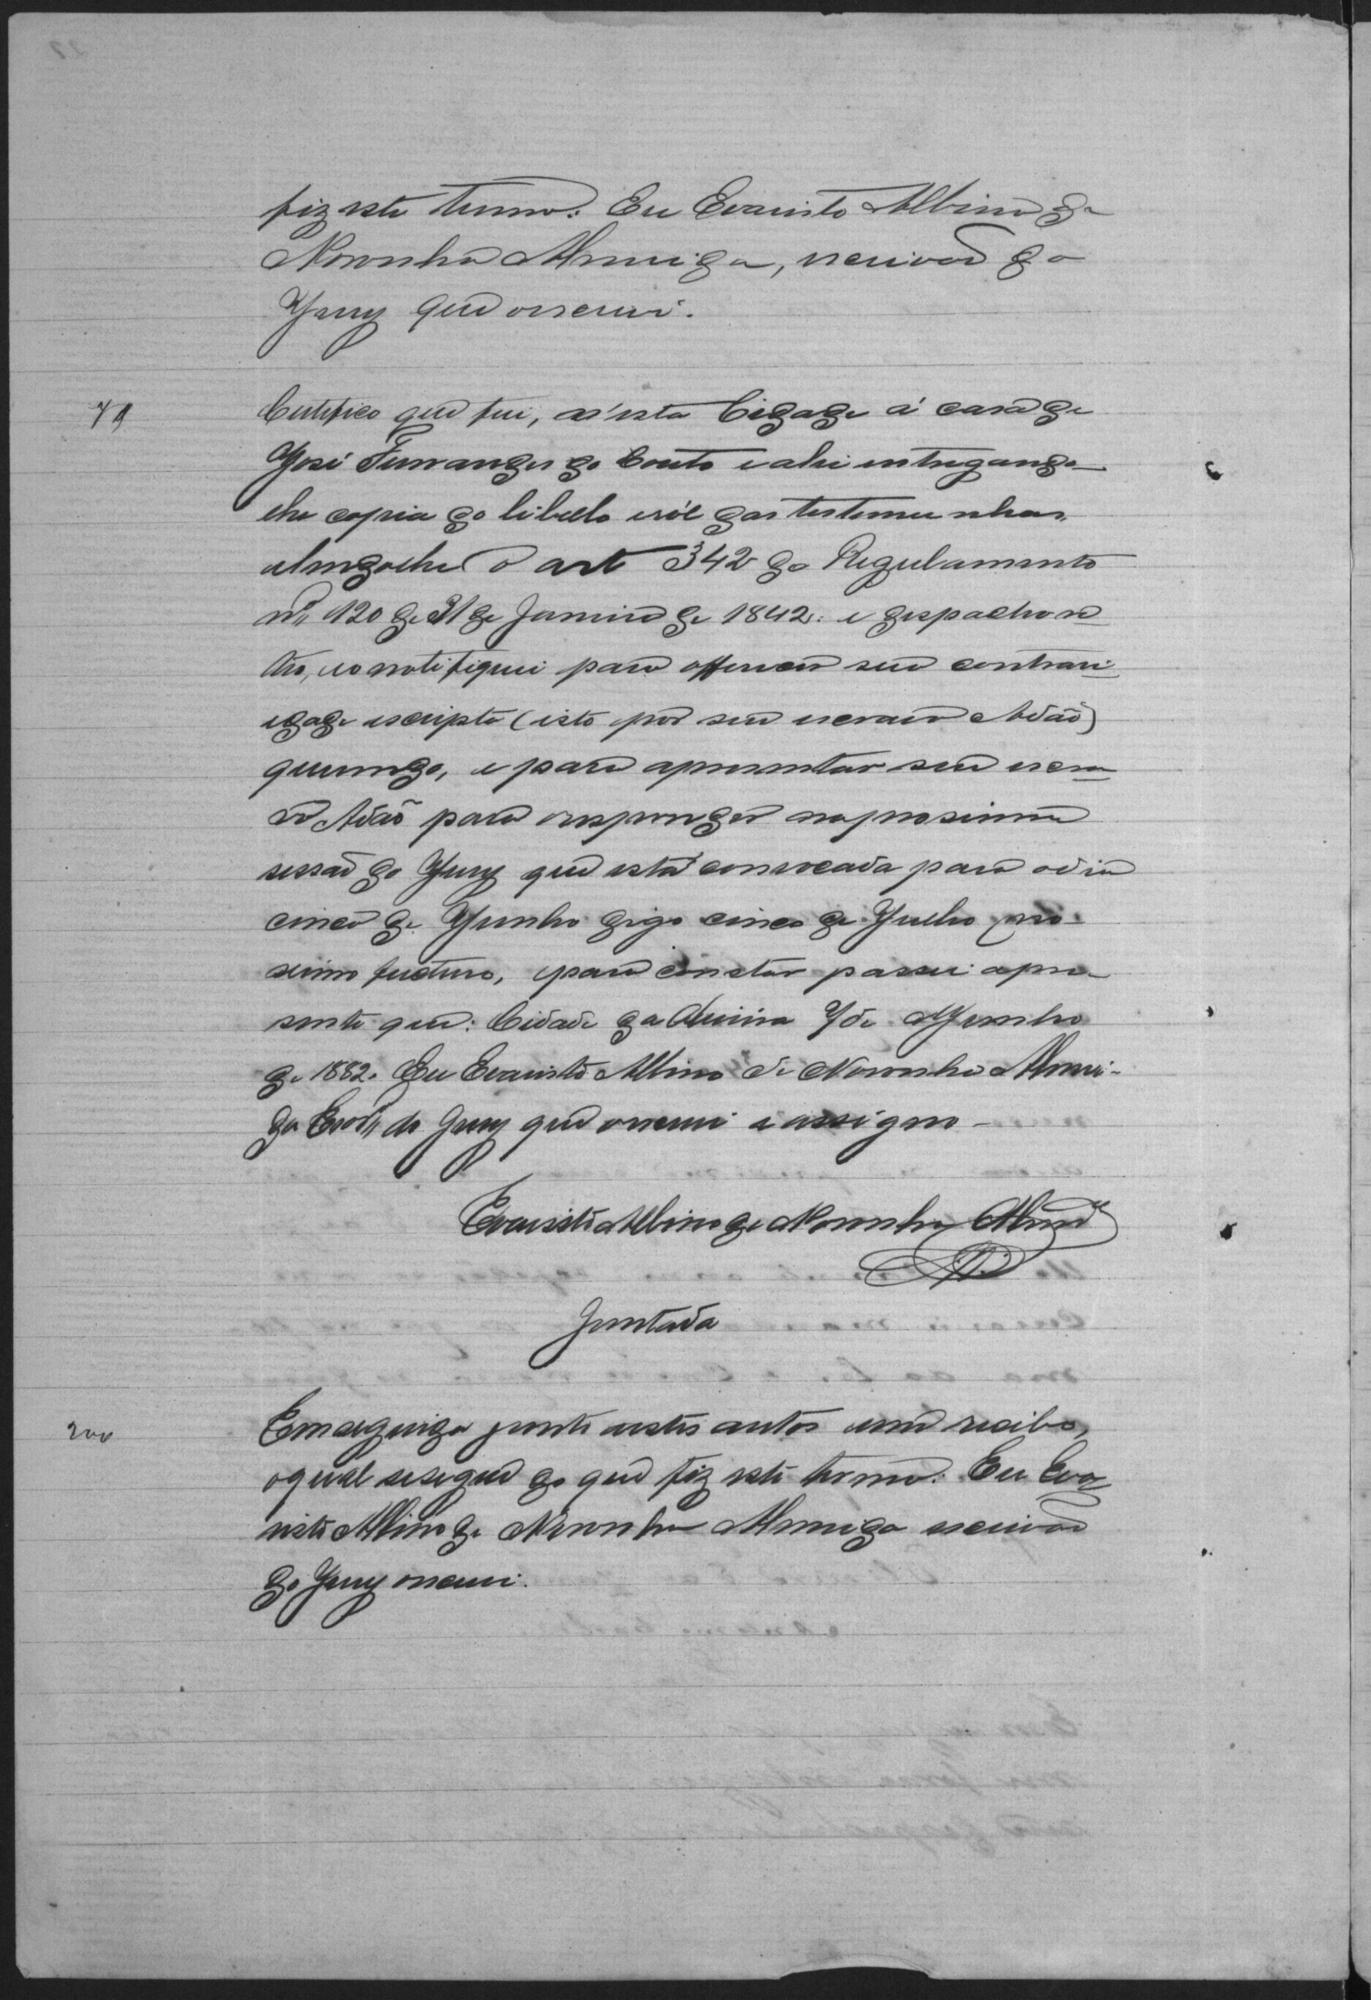 fiz este termo. Eu Evaristo Albino de
Noronha Almeida, escrivão do
Jury que o escrevi.
Certifico que fui, n'esta Cidade á casa de
José Fernandes do Couto e ahi entregando-
lhe copia do libello e ról das testemunhas,
e lendo-lhe o art 342 do Regulamento
nº 120 de 31 de Janeiro de 1842. e despacho re
tro, eo notifiquei para offerecer sua contrari-
edade escripta (isto por seu escravo Adão)
querendo, e para apresentar seu escra
vo Adão para responder na proxima
sessão do Jury que está convocada para o dia
cinco de Junho digo cinco de Julho pro-
ximo futuro, e para constar passei a pre-
sente que: Cidade da 7 de Junho
de 1882. Eu Evaristo Albino de Noronha Almei-
da Escrm do Jury que o escrevi e assigno -
Evaristo Albino de Noronha Almda
Juntada
200
Em seguida junto a estes autos um recibo,
o qual se segue do que fiz este termo. Eu Eva
risto Albino de Noronha Almeida escrivão
do Jury o escrevi.